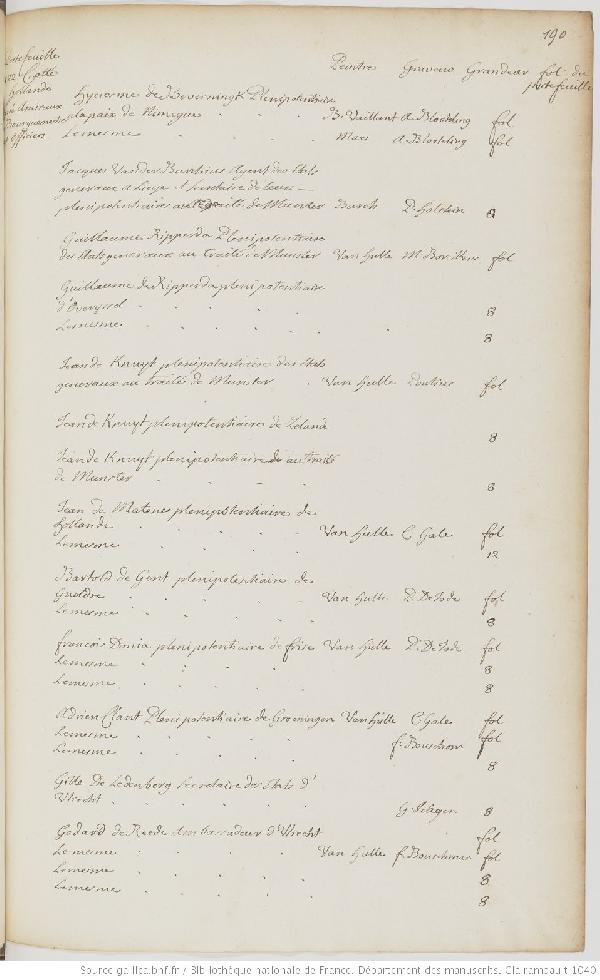 190
Portefeuille
Hollande
officiers
Peintre Graveur Grandeur fol. du
portefeuille
Hyerosme de Beverningk Plenipotentiaire
a la paix de Nimegue . . . B. Vaillant A Bloteling fol
Le mesme . . . Maes A Bloteling fol
Jacques Vander Burchius Agent des Etats
generaux a Liege et Secretaire de leurs
plenipotentiaires au traité de Munster 8
Guillaume Ripperda Plenipotentiaire
des Etats generaux au Traité de Munster Van Hulle fol
Guillaume de Ripperda plenipotentiaire
d'Overyssel . . . 8
Le mesme . . . 8
Jean de Knuyt plenipotentiaire des Etats
generaux au traité de Munster . Van Hulle Pontius fol
Jean de Knuyt plenipotentiaire de Zelande
8
Jean de Knuyt plenipotentiaire au traité
de Munster . . . 8
Jean de Matenes plenipotentiaire de
Hollande . . . Van Hulle C Gale fol
Le mesme . . . 12
Bartold de Gent plenipotentiaire de
Gueldre . . . Van Hulle P. De Jode fol
Le mesme . . . 8
francois Donia plenipotentiaire de frise Van Hulle P. De Jode fol
Le mesme . . . 8
Le mesme . . . 8
Adrien Clant Plenipotentiaire de Groeningen Van Hulle C Gale fol
Le mesme . . . f. Bouschom fol
Le mesme . . . 8
Gille De Ledenberg secretaire des Etats d'
Utrecht . . . 8
Godard de Reede Ambassadeur d'Utrecht fol
Le mesme . . . Van Hulle f. Bouschom fol
Le mesme . . . 8
Le mesme . . . 8
Source gallica.bnf.fr / Bibliothèque nationale de France. Département des manuscrits. Clairambault 1040